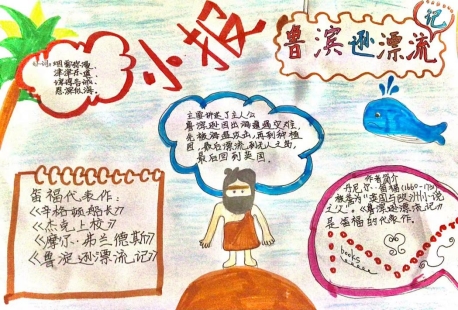 小报
鲁滨逊漂流
记
主要讲述了主人公
鲁滨逊因出海遭遇灾难,
最后回到英国。
笛福代表作:
《辛格顿船长》
《杰克上校》
《摩尔·弗兰德斯》
《鲁滨逊漂流记》
作者简介
丹尼尔·笛福(1660-173
被誉为“英国与欧洲小说
之父”。《鲁滨逊漂流记》
是笛福的代表作。
books